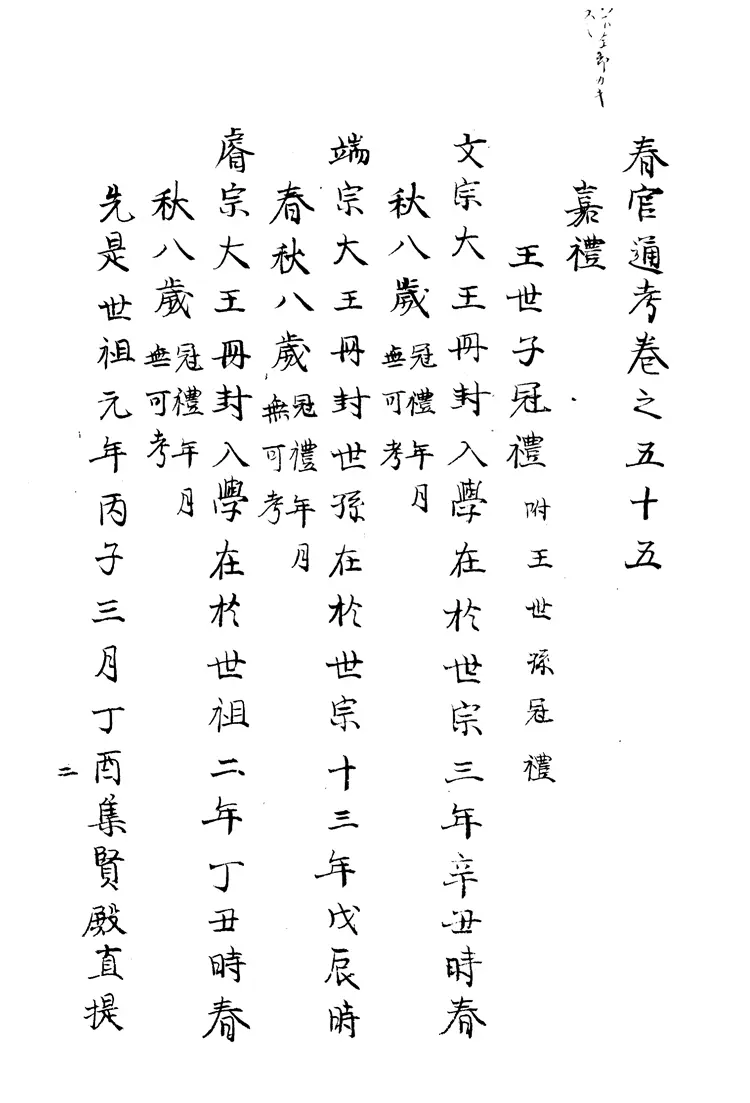 春官通考卷之五十五
嘉禮
王世子冠禮 附王世孫冠禮
文宗大王冊封入學在於世宗三年辛丑時春
秋八歲 冠禮年月無可考
端宗大王冊封世孫在於世宗十三年戊辰時
春秋八歲 冠禮年月無可考
睿宗大王冊封入學在於世祖二年丁丑時春
秋八歲 冠禮年月無可考
先是世祖元年丙子三月丁酉集賢殿直提
二